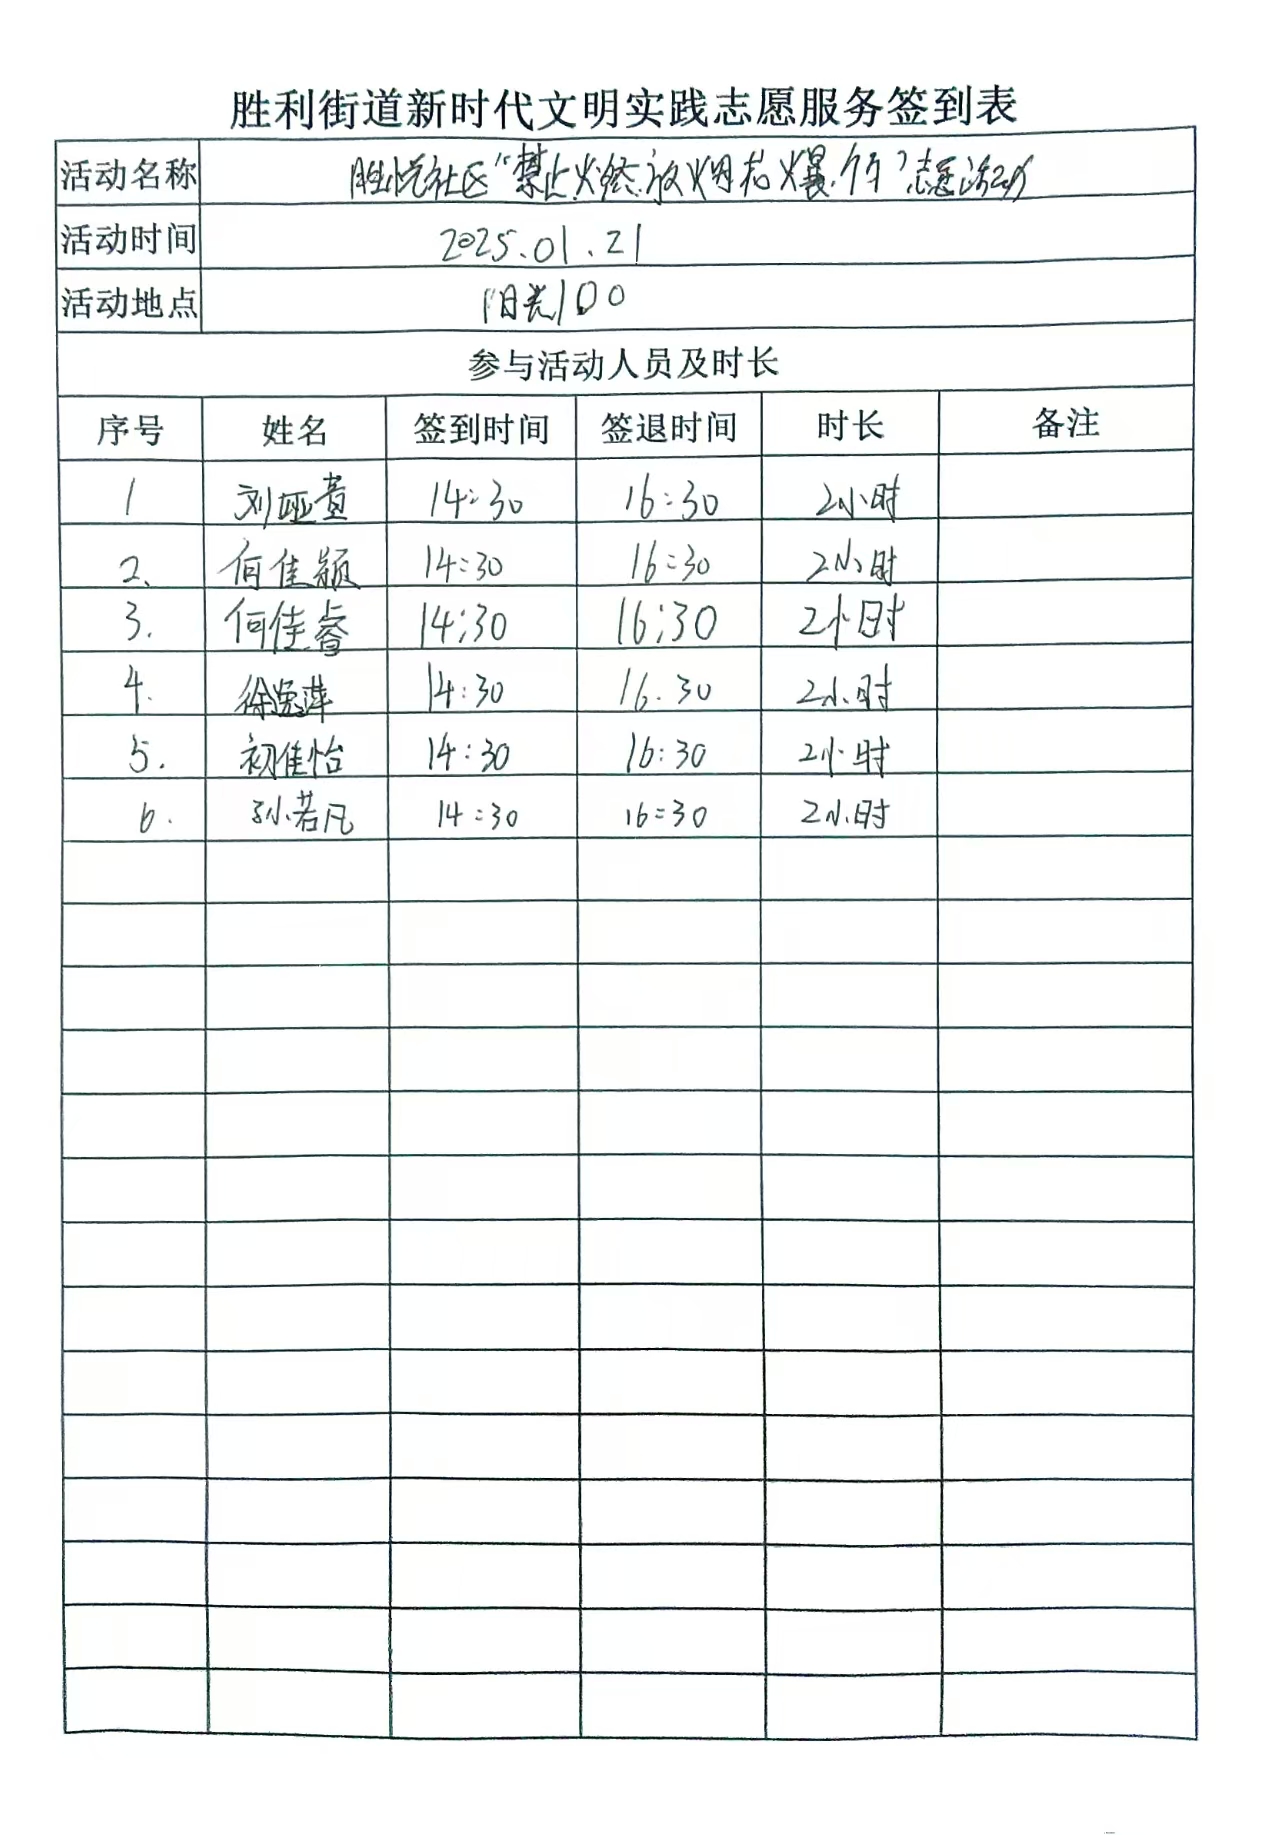 胜利街道新时代文明实践志愿服务签到表
活动名称 胜悦社区“禁止燃放烟花爆竹”志愿活动
活动时间 2025.01.21
活动地点 阳光100
参与活动人员及时长
序号 姓名 签到时间 签退时间 时长 备注
1 刘娅 14:30 16:30 2小时
2、 何佳颖 14:30 16:30 2小时
3. 何佳睿 14:30 16:30 2小时
4. 徐逸萍 14:30 16.30 2小时
5. 初佳怡 14:30 16:30 2小时
6. 孙若凡 14:30 16:30 2小时